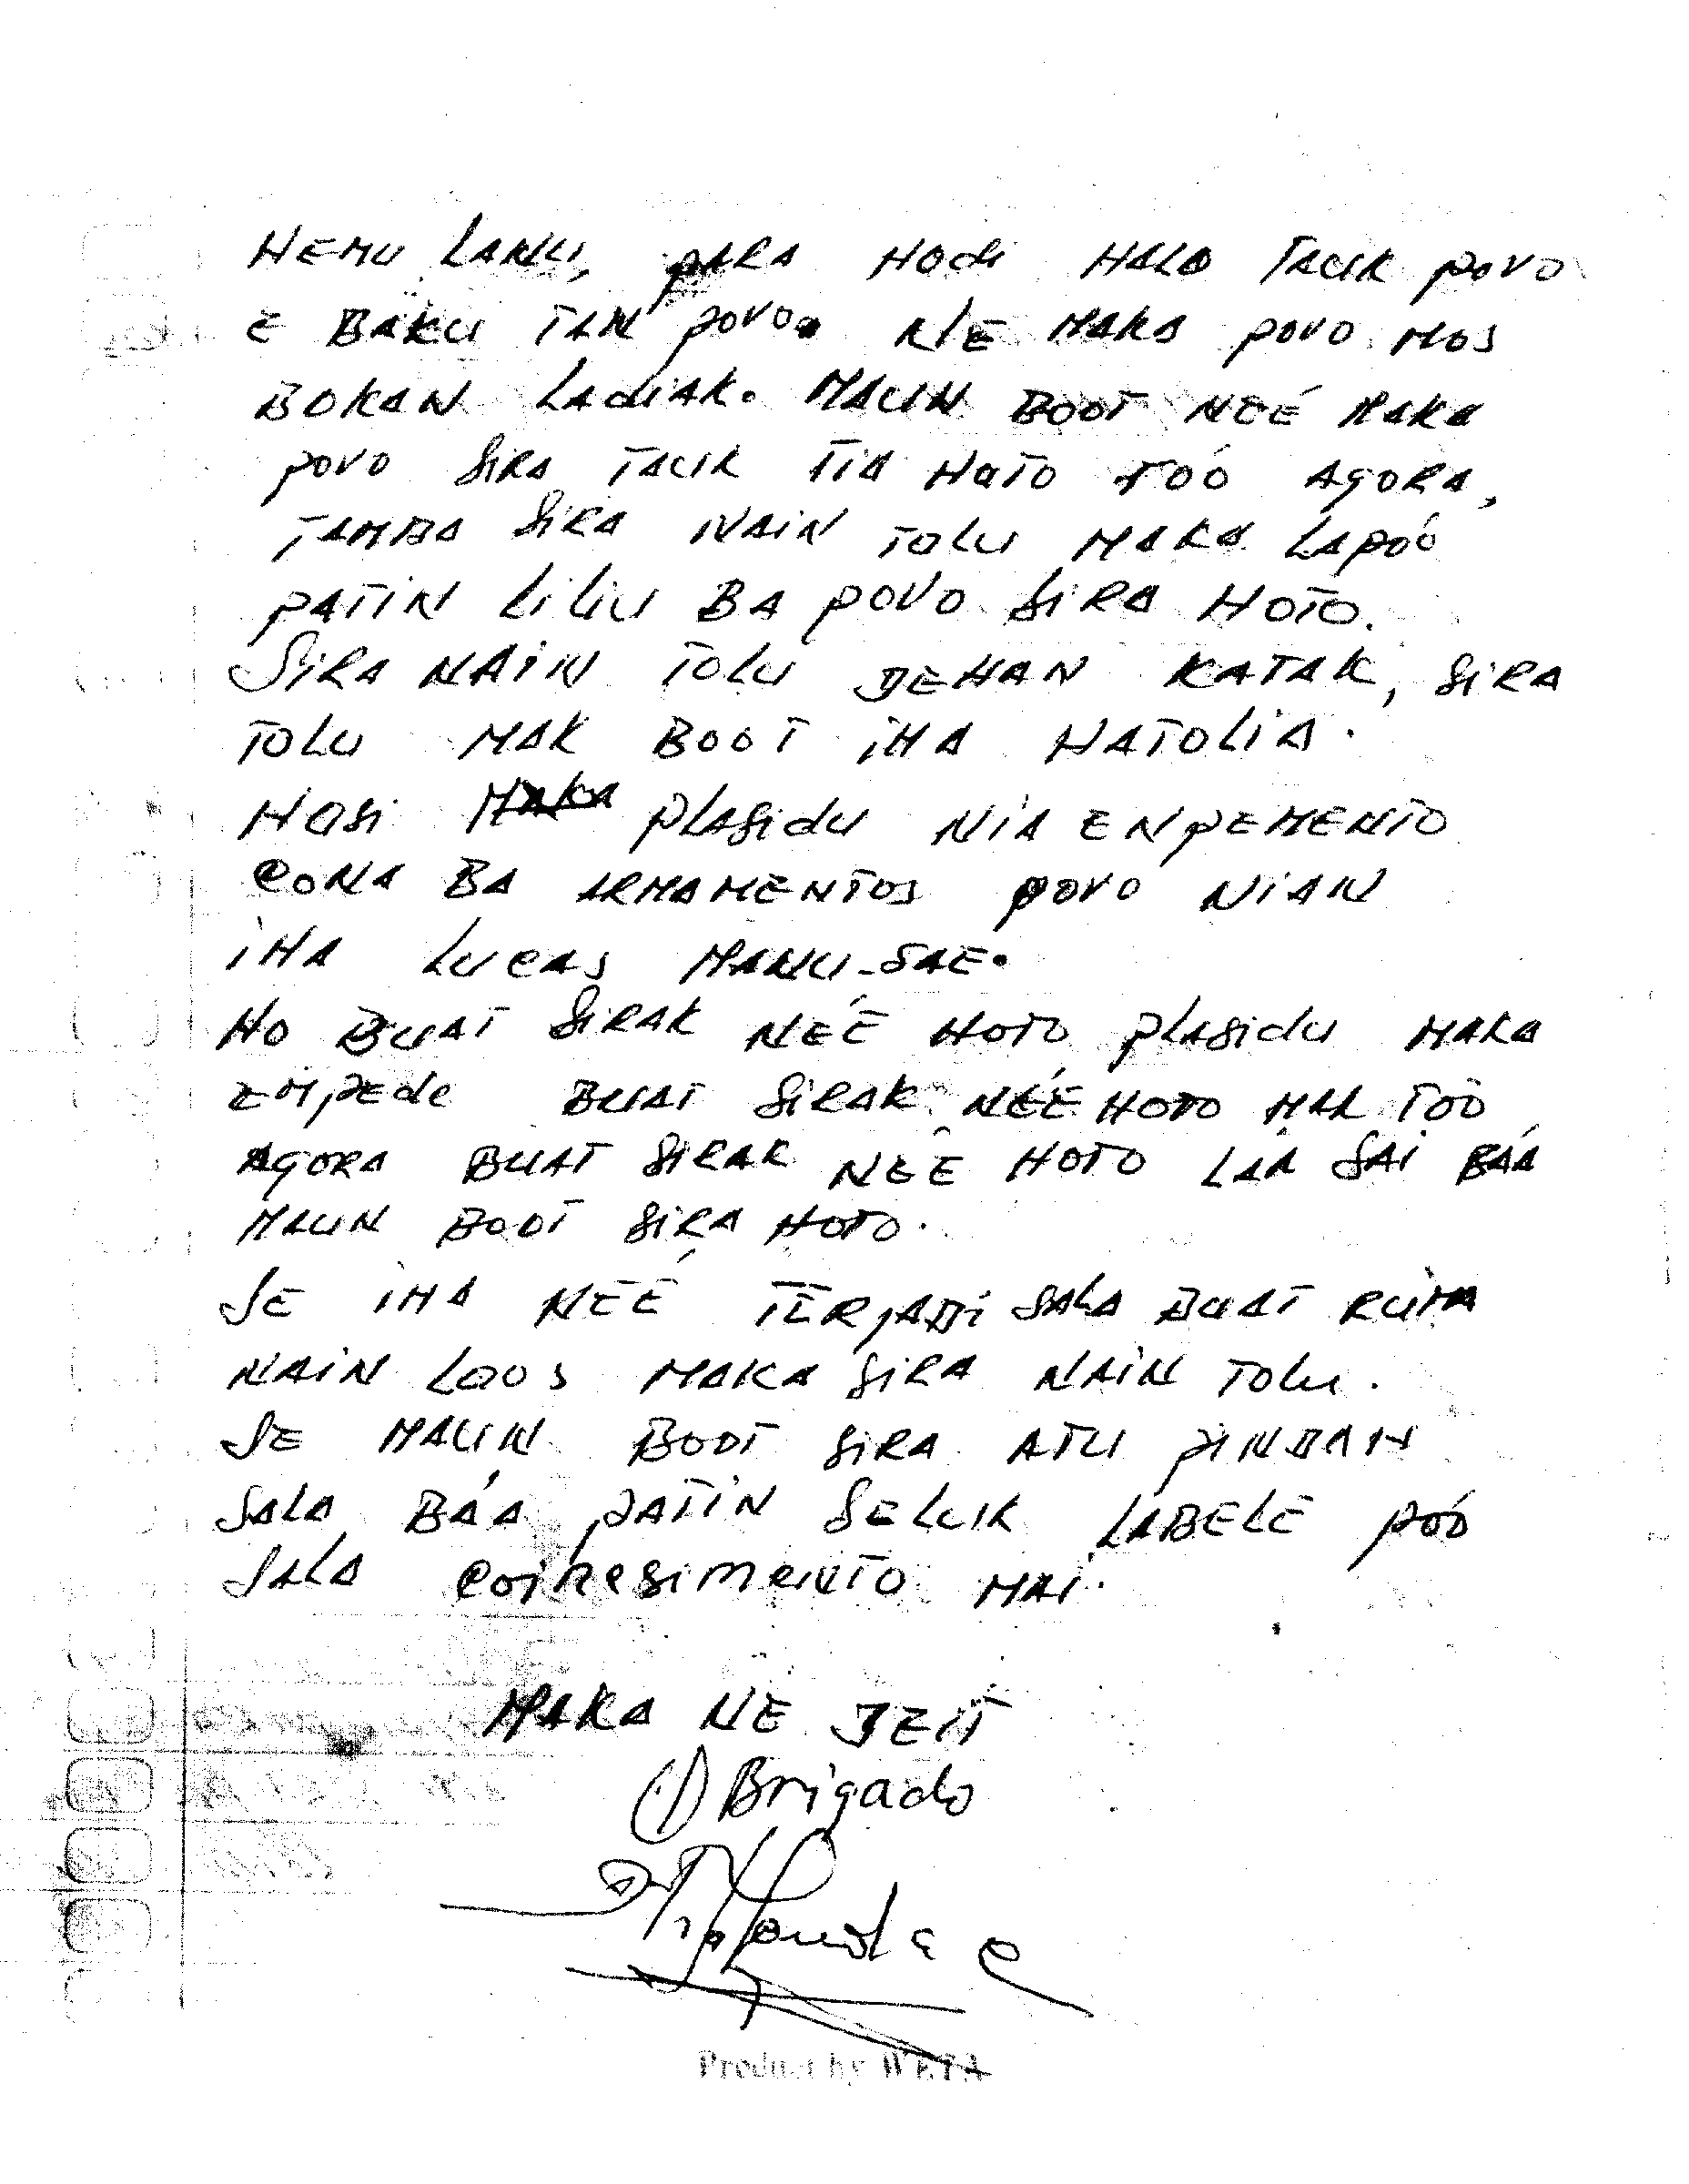 HEMU LANU, PARA HODI HALO TAUK POVO
E BAKU TAN POVO. NE MAKA POVO MOS
BOKAN LADIAK. MAUN BOOT NEÉ MAKA
POVO SIRA TAUK TIA HOTO TOÓ AGORA,
TAMBA SIRA NAIN TOLU MAKA LAPOÓ
PATIN LILIU BA POVO SIRA HOTO.
SIRA NAIN TOLU DEHAN KATAK, SIRA
TOLU MAK BOOT IHA HATOLIA.
HOSI PLASIDU NIA ENPEMENTO
CONA BA ARMAMENTOS POVO NIAN
IHA LUCAS MANU-SAE.
HO BUAT SIRAK NEÉ HOTO PLASIDU MAKA
EMPEDE BUAT SIRAK NEÉ HOTO MAK TOÓ
AGORA BUAT SIRAK NEÉ HOTO LAÁ SAI BAÁ
MAUN BOOT SIRA HOTO.
SE IHA NEÉ TERJADI SALA BUAT RUMA
NAIN LOOS MAKA SIRA NAIN TOLU.
SE MAUN BOOT SIRA ATU PINDAH
SALA BÁA PATIN SELUK LABELE POÓ
SALA COINESIMENTO MAI.
MAKA NE DEIT
Brigado
Product by WETA